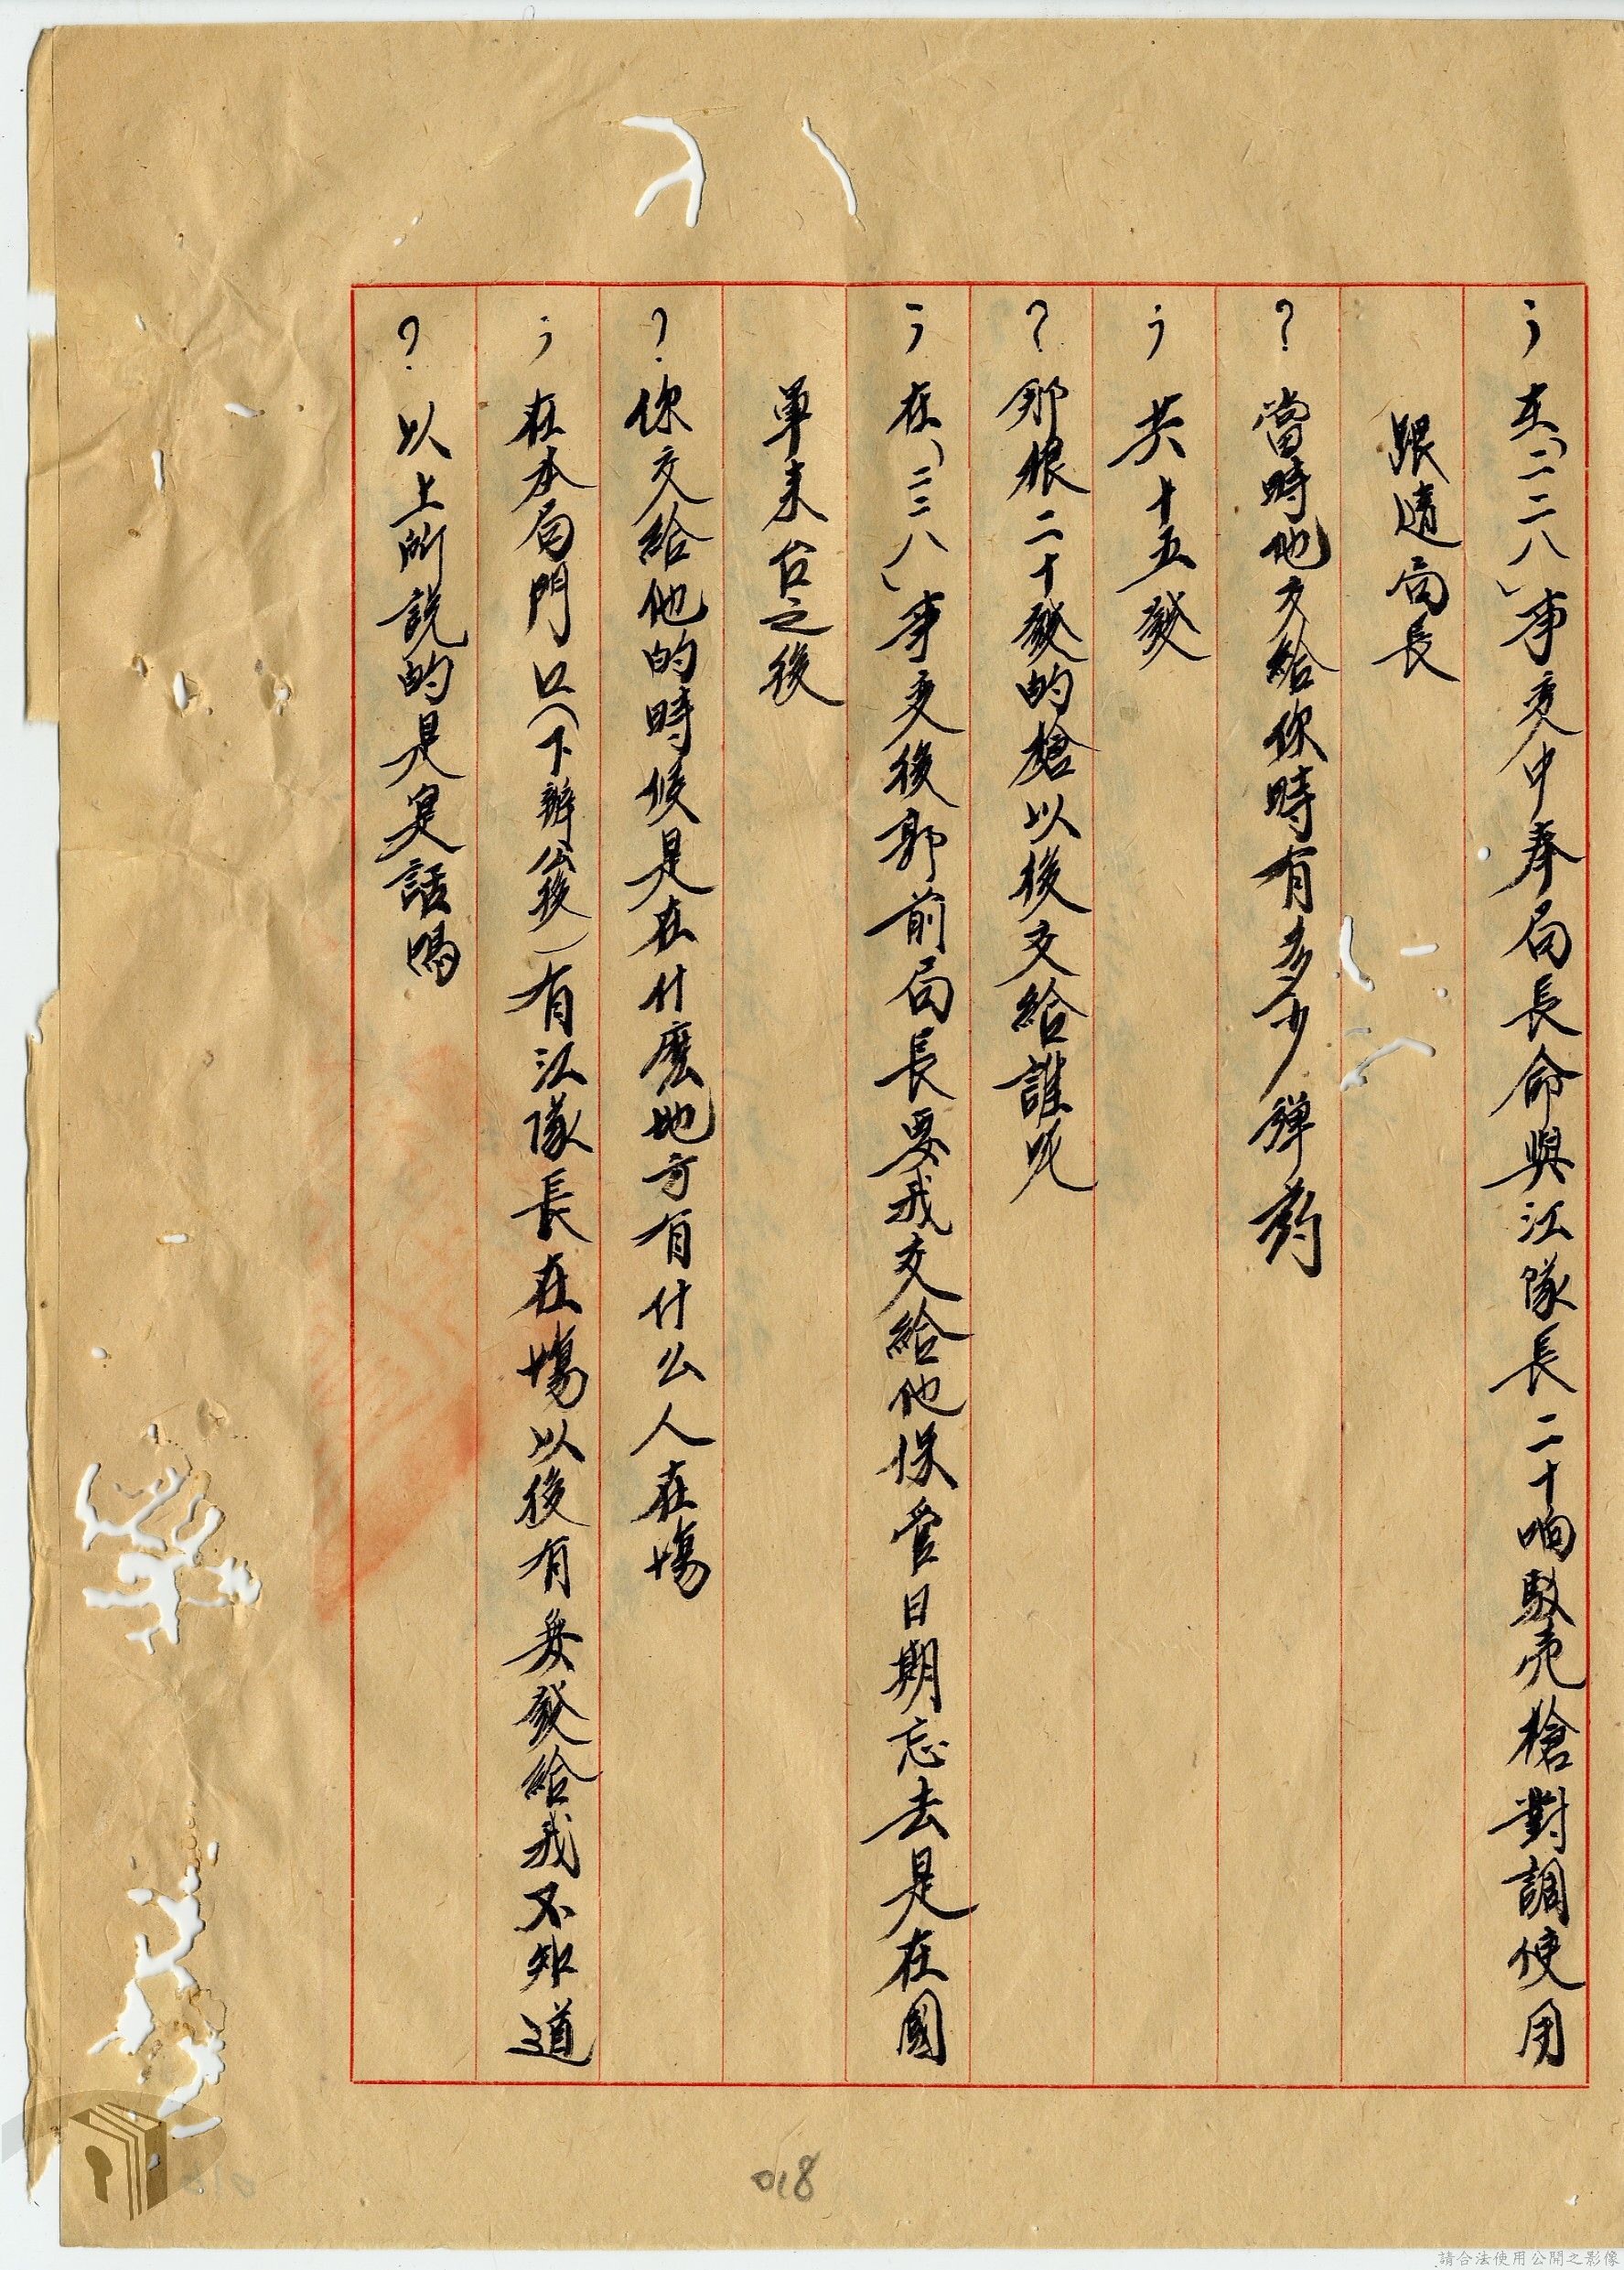 ; 在(二二八)事变中奉局長命與江隊長二十响駁壳槍對調使用
跟適局長
? 當時他交給你時有多少弹药
; 共十五發
? 那根二十發的槍以後交給誰呢
; 在(二二八)事变後郭前局長要我交給他保管日期忘去是在國
軍来台之後
? 你交給他的時候是在什麼地方有什么人在場
; 在本局門口(下辦公後)有江隊長在場以後有無發給我不知道
? 以上所説的是実話嗎
018
請合法使用公開之影像